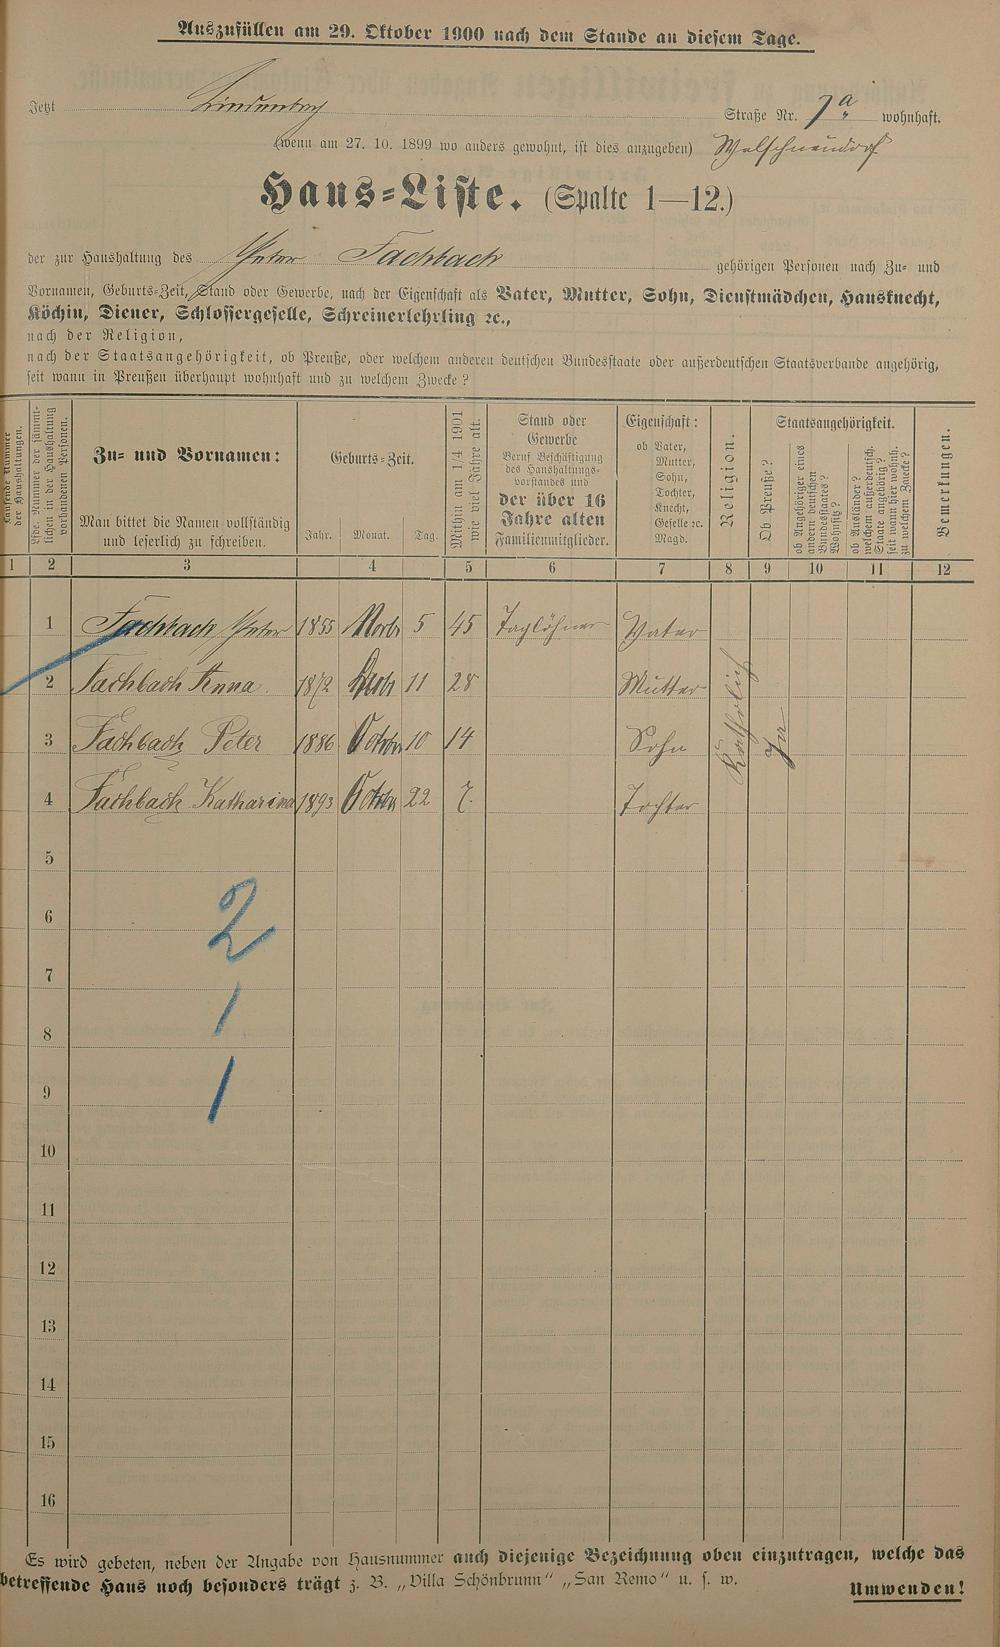 Auszufüllen am 29. Oktober 1900 nach dem Stande an diesem Tage.
Jetzt Lindenbach Straße Nr. 7a wohnhaft.
(wenn am 27. 10. 1899 wo anders gewohnt, ist dies anzugeben) Welschneudorf
Haus=Liste. (Spalte 1—12.)
der zur Haushaltung des Peter Fachbach gehörigen Personen nach Zu= und
Vornamen, Geburts=Zeit, Stand oder Gewerbe, nach der Eigenschaft als Vater, Mutter, Sohn, Dienstmädchen, Hausknecht,
Köchin, Diener, Schlossergeselle, Schreinerlehrling ec.,
nach der Religion,
nach der Staatsangehörigkeit, ob Preuße, oder welchem anderen deutschen Bundesstaate oder außerdeutschen Staatsverbande angehörig,
seit wann in Preußen überhaupt wohnhaft und zu welchem Zwecke?
Laufende Nummer
der Haushaltungen.
Lfde. Nummer der sämmt-
lichen in der Haushaltung
vorhandenen Personen.
Zu= und Vornamen:
Man bittet die Namen vollständig
und leserlich zu schreiben.
Geburts=Zeit.
Jahr. Monat. Tag.
Mithin am 1/4 1901
wie viel Jahre alt.
Stand oder
Gewerbe
Beruf Beschäftigung
des Haushaltungs-
vorstandes und
der über 16
Jahre alten
Familienmitglieder.
Eigenschaft:
ob Vater,
Mutter,
Sohn,
Tochter,
Knecht,
Geselle ec.
Magd.
Religion.
Staatsangehörigkeit.
Ob Preuße?
ob Angehöriger eines
andern deutschen
Bundesstaates?
Wohnsitz?
ob Ausländer?
welchem außerdeutsch.
Staate angehörig?
seit wann hier wohnh.
zu welchem Zwecke?
Bemerkungen.
1 2 3 4 5 6 7 8 9 10 11 12
1 Fachbach Peter 1855 Novbr 5 45 Taglöhner Vater
2 Fachbach Anna. 1872 11 28 Mutter
3 Fachbach Peter 1886 Octobr 10 14 Sohn
4 Fachbach Katharina 1893 Octobr 22 7. Tochter
Katholich
Ja
5
6
7
8
9
10
11
12
13
14
15
16
2
1
1
Es wird gebeten, neben der Angabe von Hausnummer auch diejenige Bezeichnung oben einzutragen, welche das
betreffende Haus noch besonders trägt z. B. „Villa Schönbrunn“ „San Remo“ u. s. w.
Umwenden!